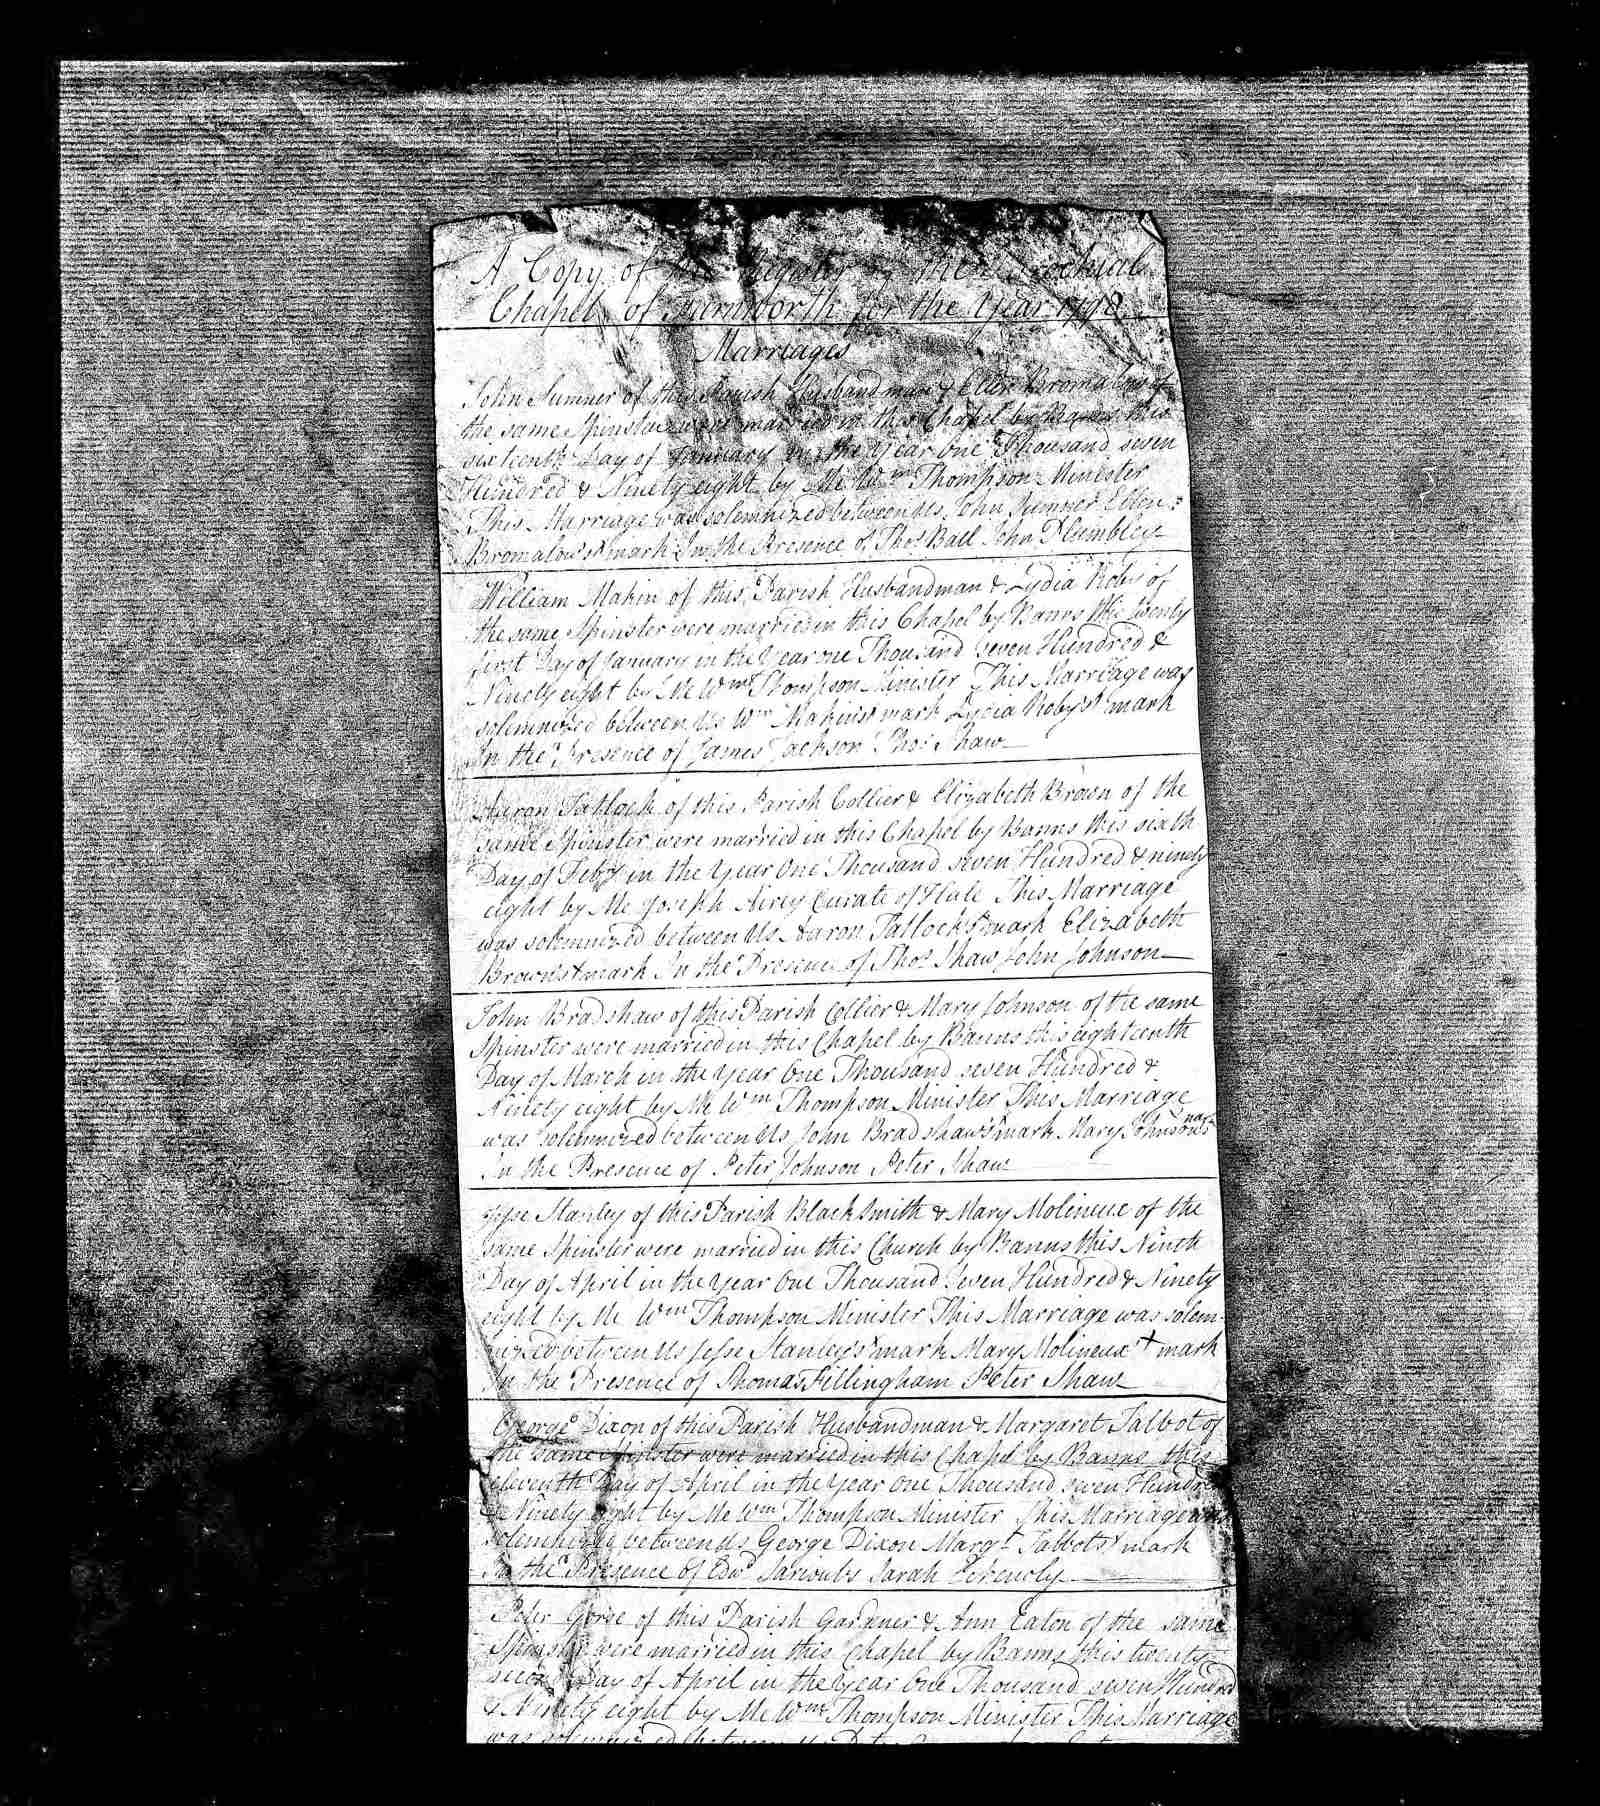 A Copy of the Register of the Parochial
Chapel of Farnworth for the Year 1798
Marriages
John Sumner of this Parish Husbandman & Ellen Bromalow of
the same Spinster were married in this Chapel by Banns this
sixteenth Day of January in the Year One Thousand seven
Hundred & Ninety eight by Me Wm Thompson Minister
This Marriage was solemnized between Us John Sumner Ellen
Bromalow's x mark In the Presence of Thos Ball John Plumbley
William Makin of this Parish Husbandman & Lydia Roby of
the same Spinster were married in this Chapel by Banns this twenty
first Day of January in the Year one Thousand seven Hundred &
Ninety eight by Me Wm Thompson Minister This Marriage was
solemnized between Us Wm Makin's x mark Lydia Roby's x mark
In the Presence of James Jackson Thos Shaw
Aaron Tatlock of this Parish Collier & Elizabeth Brown of the
same Spinster were married in this Chapel by Banns this sixth
Day of Feby in the Year One Thousand seven Hundred & ninety
eight by Me Joseph Airey Curate of Hale This Marriage
was solemnized between Us Aaron Tatlock's x mark Elizabeth
Brown's x mark In the Presence of Thos Shaw John Johnson
John Bradshaw of this Parish Collier & Mary Johnson of the same
Spinster were married in this Chapel by Banns this eighteenth
Day of March in the Year One Thousand seven Hundred &
Ninety eight by Me Wm Thompson Minister This Marriage
was solemnized between Us John Bradshaw's x mark Mary Johnson's mark
In the Presence of Peter Johnson Peter Shaw
Jesse Stanley of this Parish BlackSmith & Mary Molineux of the
same Spinster were married in this Church by Banns this Ninth
Day of April in the Year One Thousand Seven Hundred & Ninety
eight by Me Wm Thompson Minister This Marriage was solem-
nized between Us Jesse Stanley's x mark Mary Molineux + mark
In the Presence of Thomas Fillingham Peter Shaw
George Dixon of this Parish Husbandman & Margaret Talbot of
the same Spinster were married in this Chapel by Banns this
eleventh Day of April in the Year One Thousand seven Hundred
& Ninety eight by Me Wm Thompson Minister This Marriage was
solemnized between Us George Dixon Margt Talbot's x mark
In the Presence of Edwd Sarah
Peter Gorse of this Parish Gardner & Ann Eaton of the same
Spinster were married in this Chapel by Banns this twenty
second Day of April in the Year One Thousand seven Hundred
& Ninety eight by Me Wm Thompson Minister This Marriage
was solemnized between Us